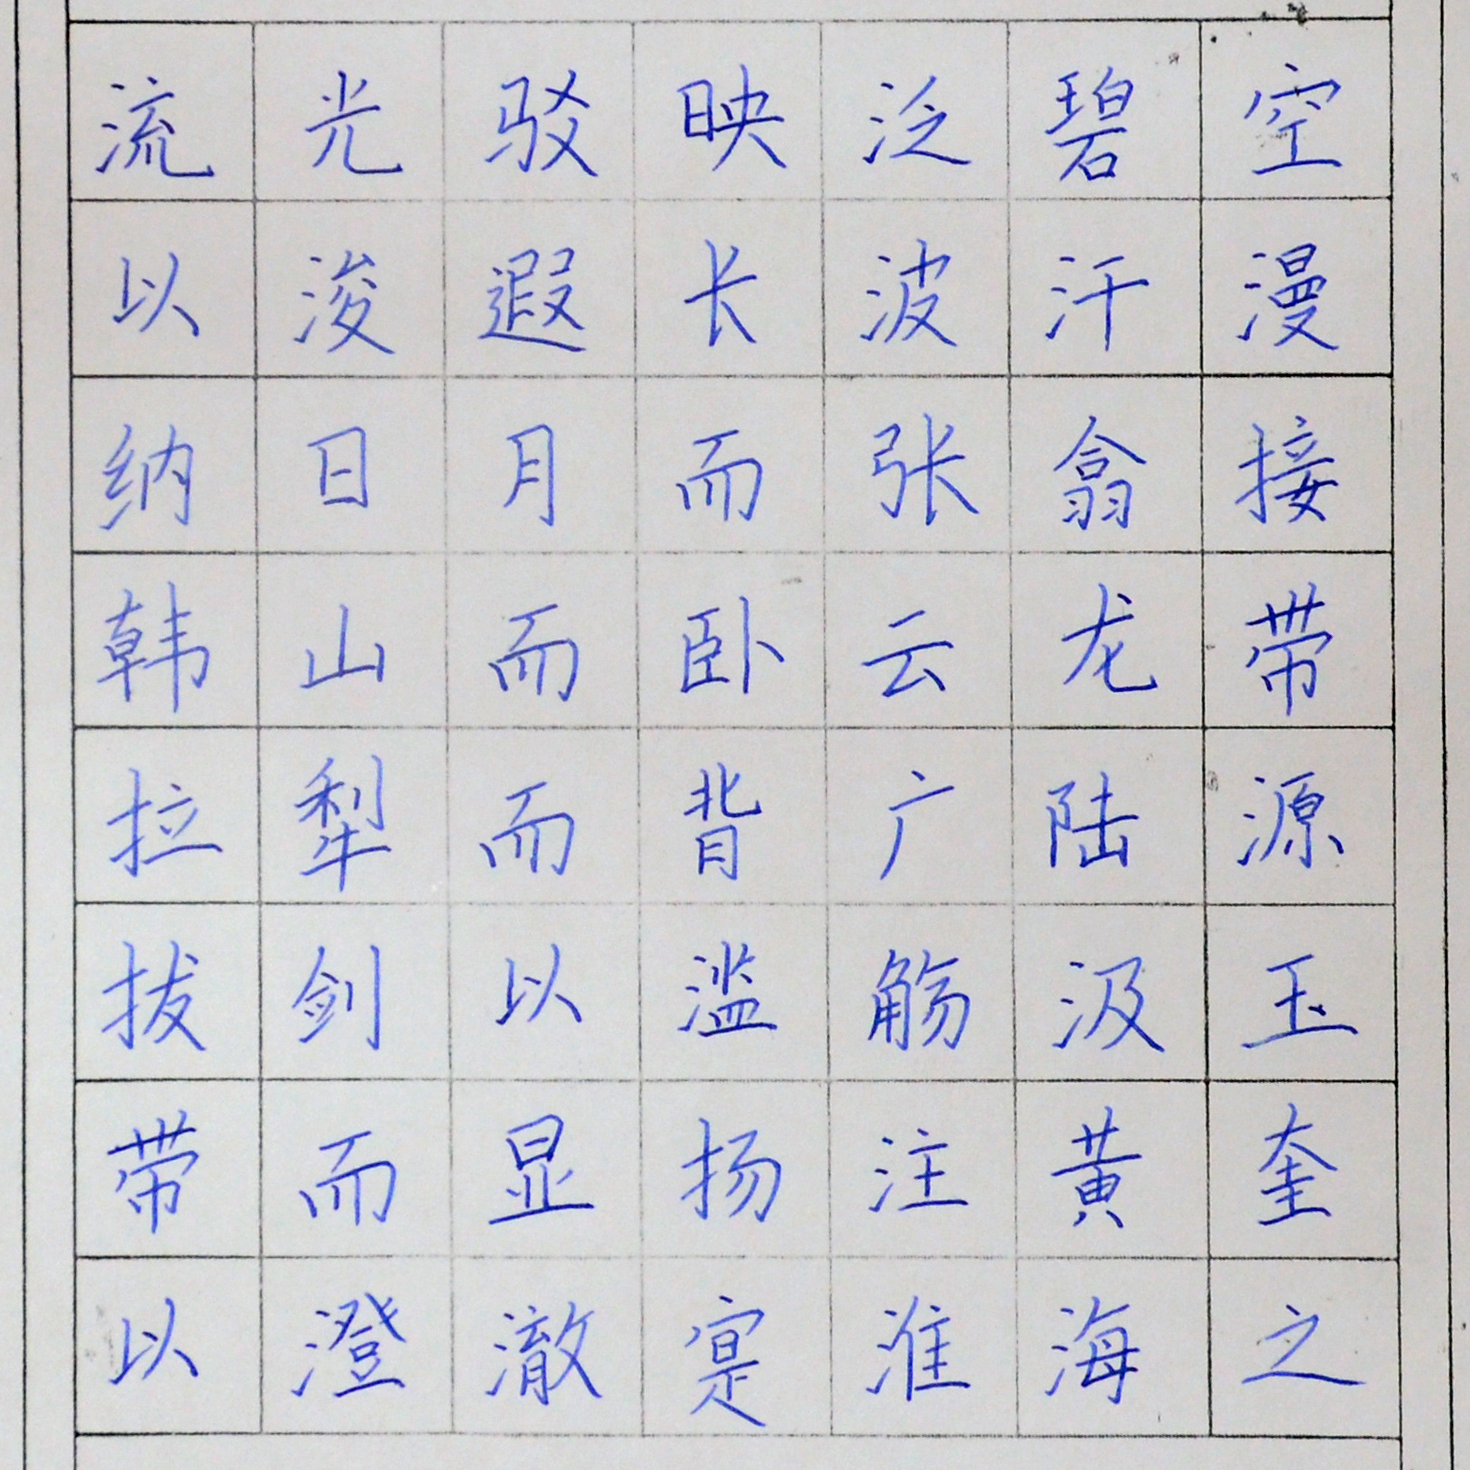 流光驳映泛碧空
以浚遐长波汗漫
纳日月而张翕接
韩山而卧云龙带
拉犁而背广陆源
拔剑以滥觞汲玉
带而显扬注黄奎
以澄澈寔淮海之